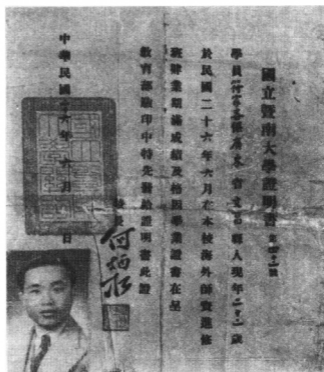 國立暨南大學證明書
學員 係廣東省 縣人現年二十 歲
於民國二十六年六月在本校海外師資進修
班肄業期滿成績及格因畢業證書在呈
教育部驗印中特先發給證明書此證
校長何炳松
中華民國二十六年 月 日